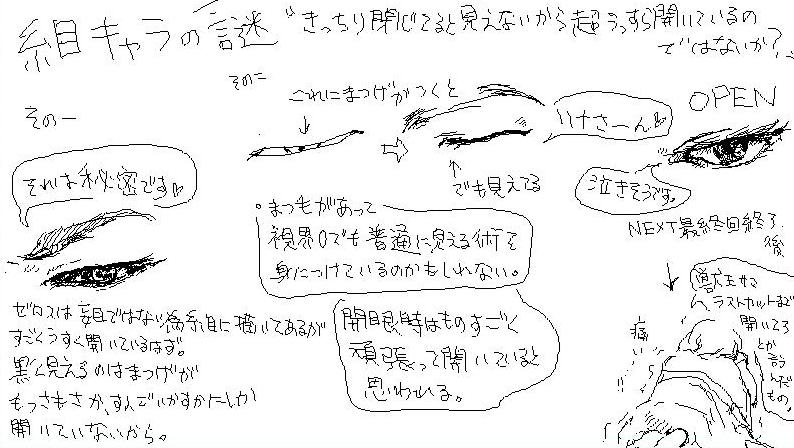 細目キャラの謎
"きっちり閉じてると見えないから超うっすら開いているの
ではないか?"
その一
それは秘密です♡
ゼロスは盲目ではない為糸目に描いてあるが
すごくうすく開いているはず。
黒く見えるのはまつげが
もっさもさか、すんごいかすかにしか
開いていないから。
その二
これにまつげがつくと
でも見えてる
リナさーん♡
まつ毛があって
視界0でも普通に見える術を
身につけているのかもしれない。
開眼時はものすごく
頑張って開いていると
思われる。
OPEN
泣きそうです。
NEXT最終回終了
後
獣王サマ
ラストカットまで
開いてろ
とか
言う
んだ
もの。
痛